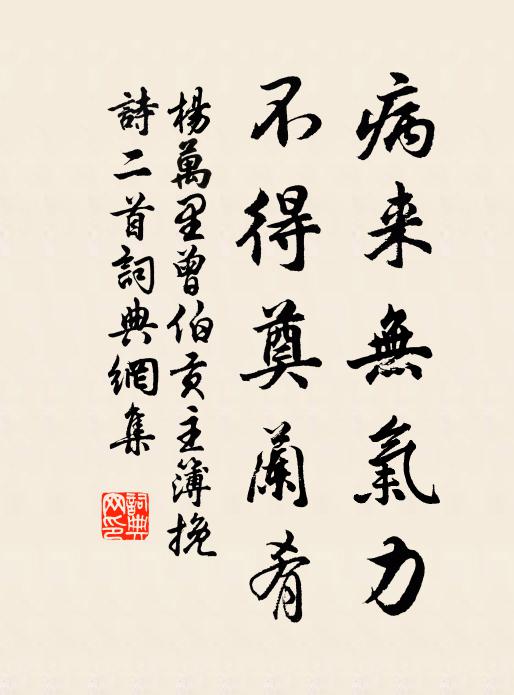 病来無氣力
不得奠蘭肴
楊萬里曾伯貢主簿挽
詩二首詞典網集
詞典
网印